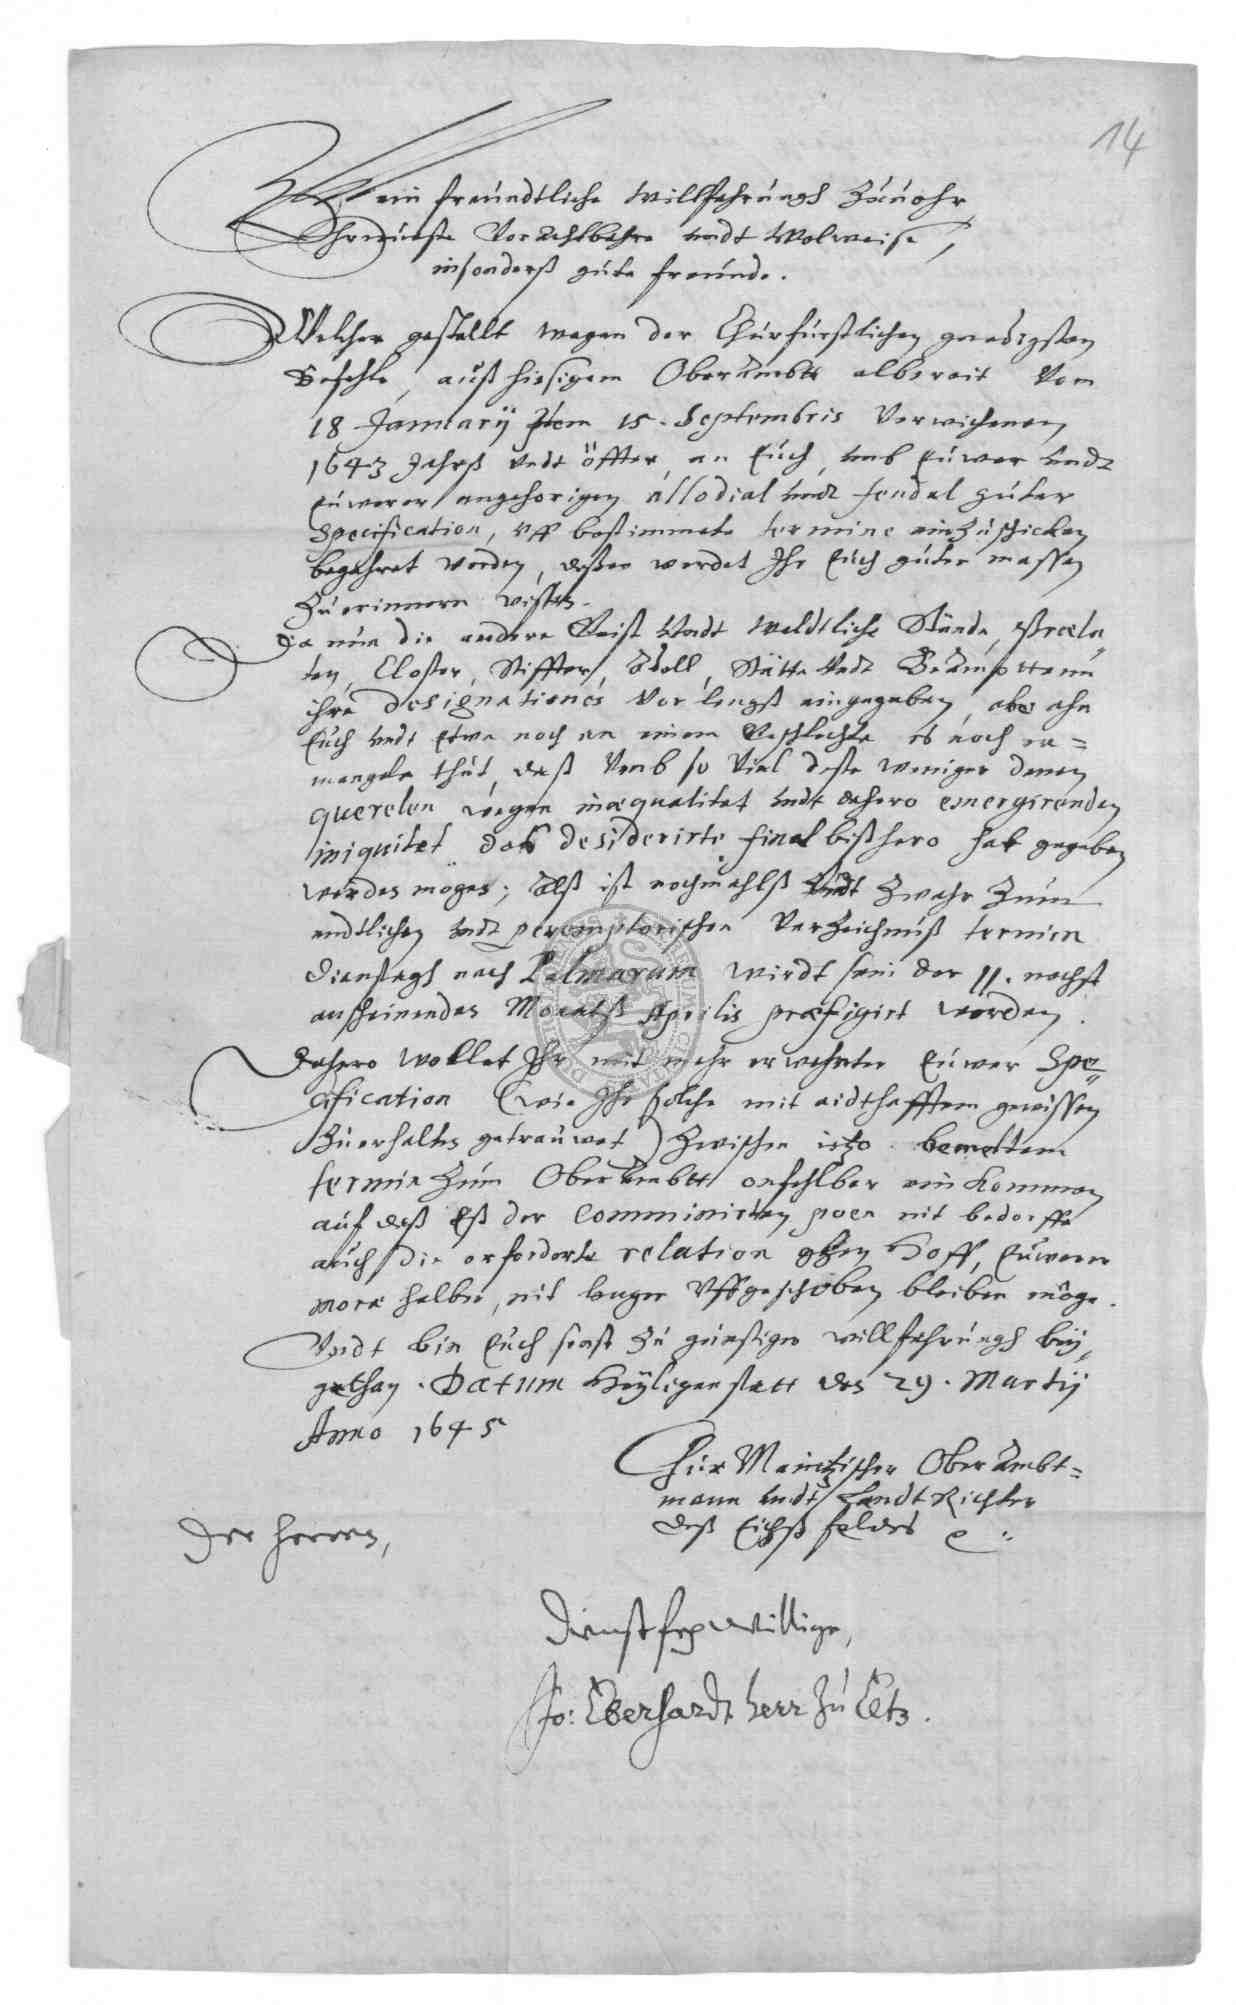 14
Mein freundtliche Willfahrungh Zuuohr
Ehrnueste Vorachtbahre undt Wolweise,
insonderß gute freunde.
Welcher gestallt wegen der Churfürstlichen gnedigsten
Befehle, auß hiesigem Oberambtt albereit Vom
18 January Item 15. Septembris Verwichenen
1643 Jahrß undt öffter, an Euch, umb Euwer undt
Euwerer angehorigen allodial undt feudal guter
Specification, uff bestimmete termine einzuschicken
begehret worden, deßen werdet Ihr Euch guter massen
Zuerinnern wissen.
Da nun die andere Geist Undt Weldtliche Stände, Praela„
ten, Closter, Stiffter, Adell, Stätte Undt Beampttenn
ihre designationes Vor lengst eingegeben, ahn
Euch undt Etwa noch an einem Geschlechte es noch er=
mangeln thut, daß Umb so Viel deste weniger denen
querelen wegen inaequalitet undt dahero emergirenden
iniquitet das desiderirte final bißhero hat gegeben
werden mögen; Alß ist nochmahlß Undt Zwahr Zum
endtlichen undt peremptorischen Verzeichnuß termin
Dienstagh nach Palmarum wirdt sein der 11. nechst
anscheinenden Monatß Aprilis praefigirt worden.
Dahero wollet Ihr mit mehr erwehnter Euwer Spe„
cification (wie Ihr solche mit eidthafftem gewissen
Zuerhalten getrauwet) Zwischen itzo bemeltem
termin Zum Oberambtt onfehlbar ein kommen
auf daß Eß der comminirten poen nit bedorffe
auch die erforderte relation ghen Hoff, Euwerer
morae halber, nit langer Uffgeschoben bleiben möge.
Undt bin Euch sonst zu gunstiger willfahrungh bey„
gethan. Datum Heyligenstatt den 29. Martij
Anno 1645
Chur Maintzischer Oberambt=
mann undt Landt Richter
deß Eichßfeldes
Der herren,
Dienstfreywilliger,
Jo: Eberhardt herr zu Eltz.